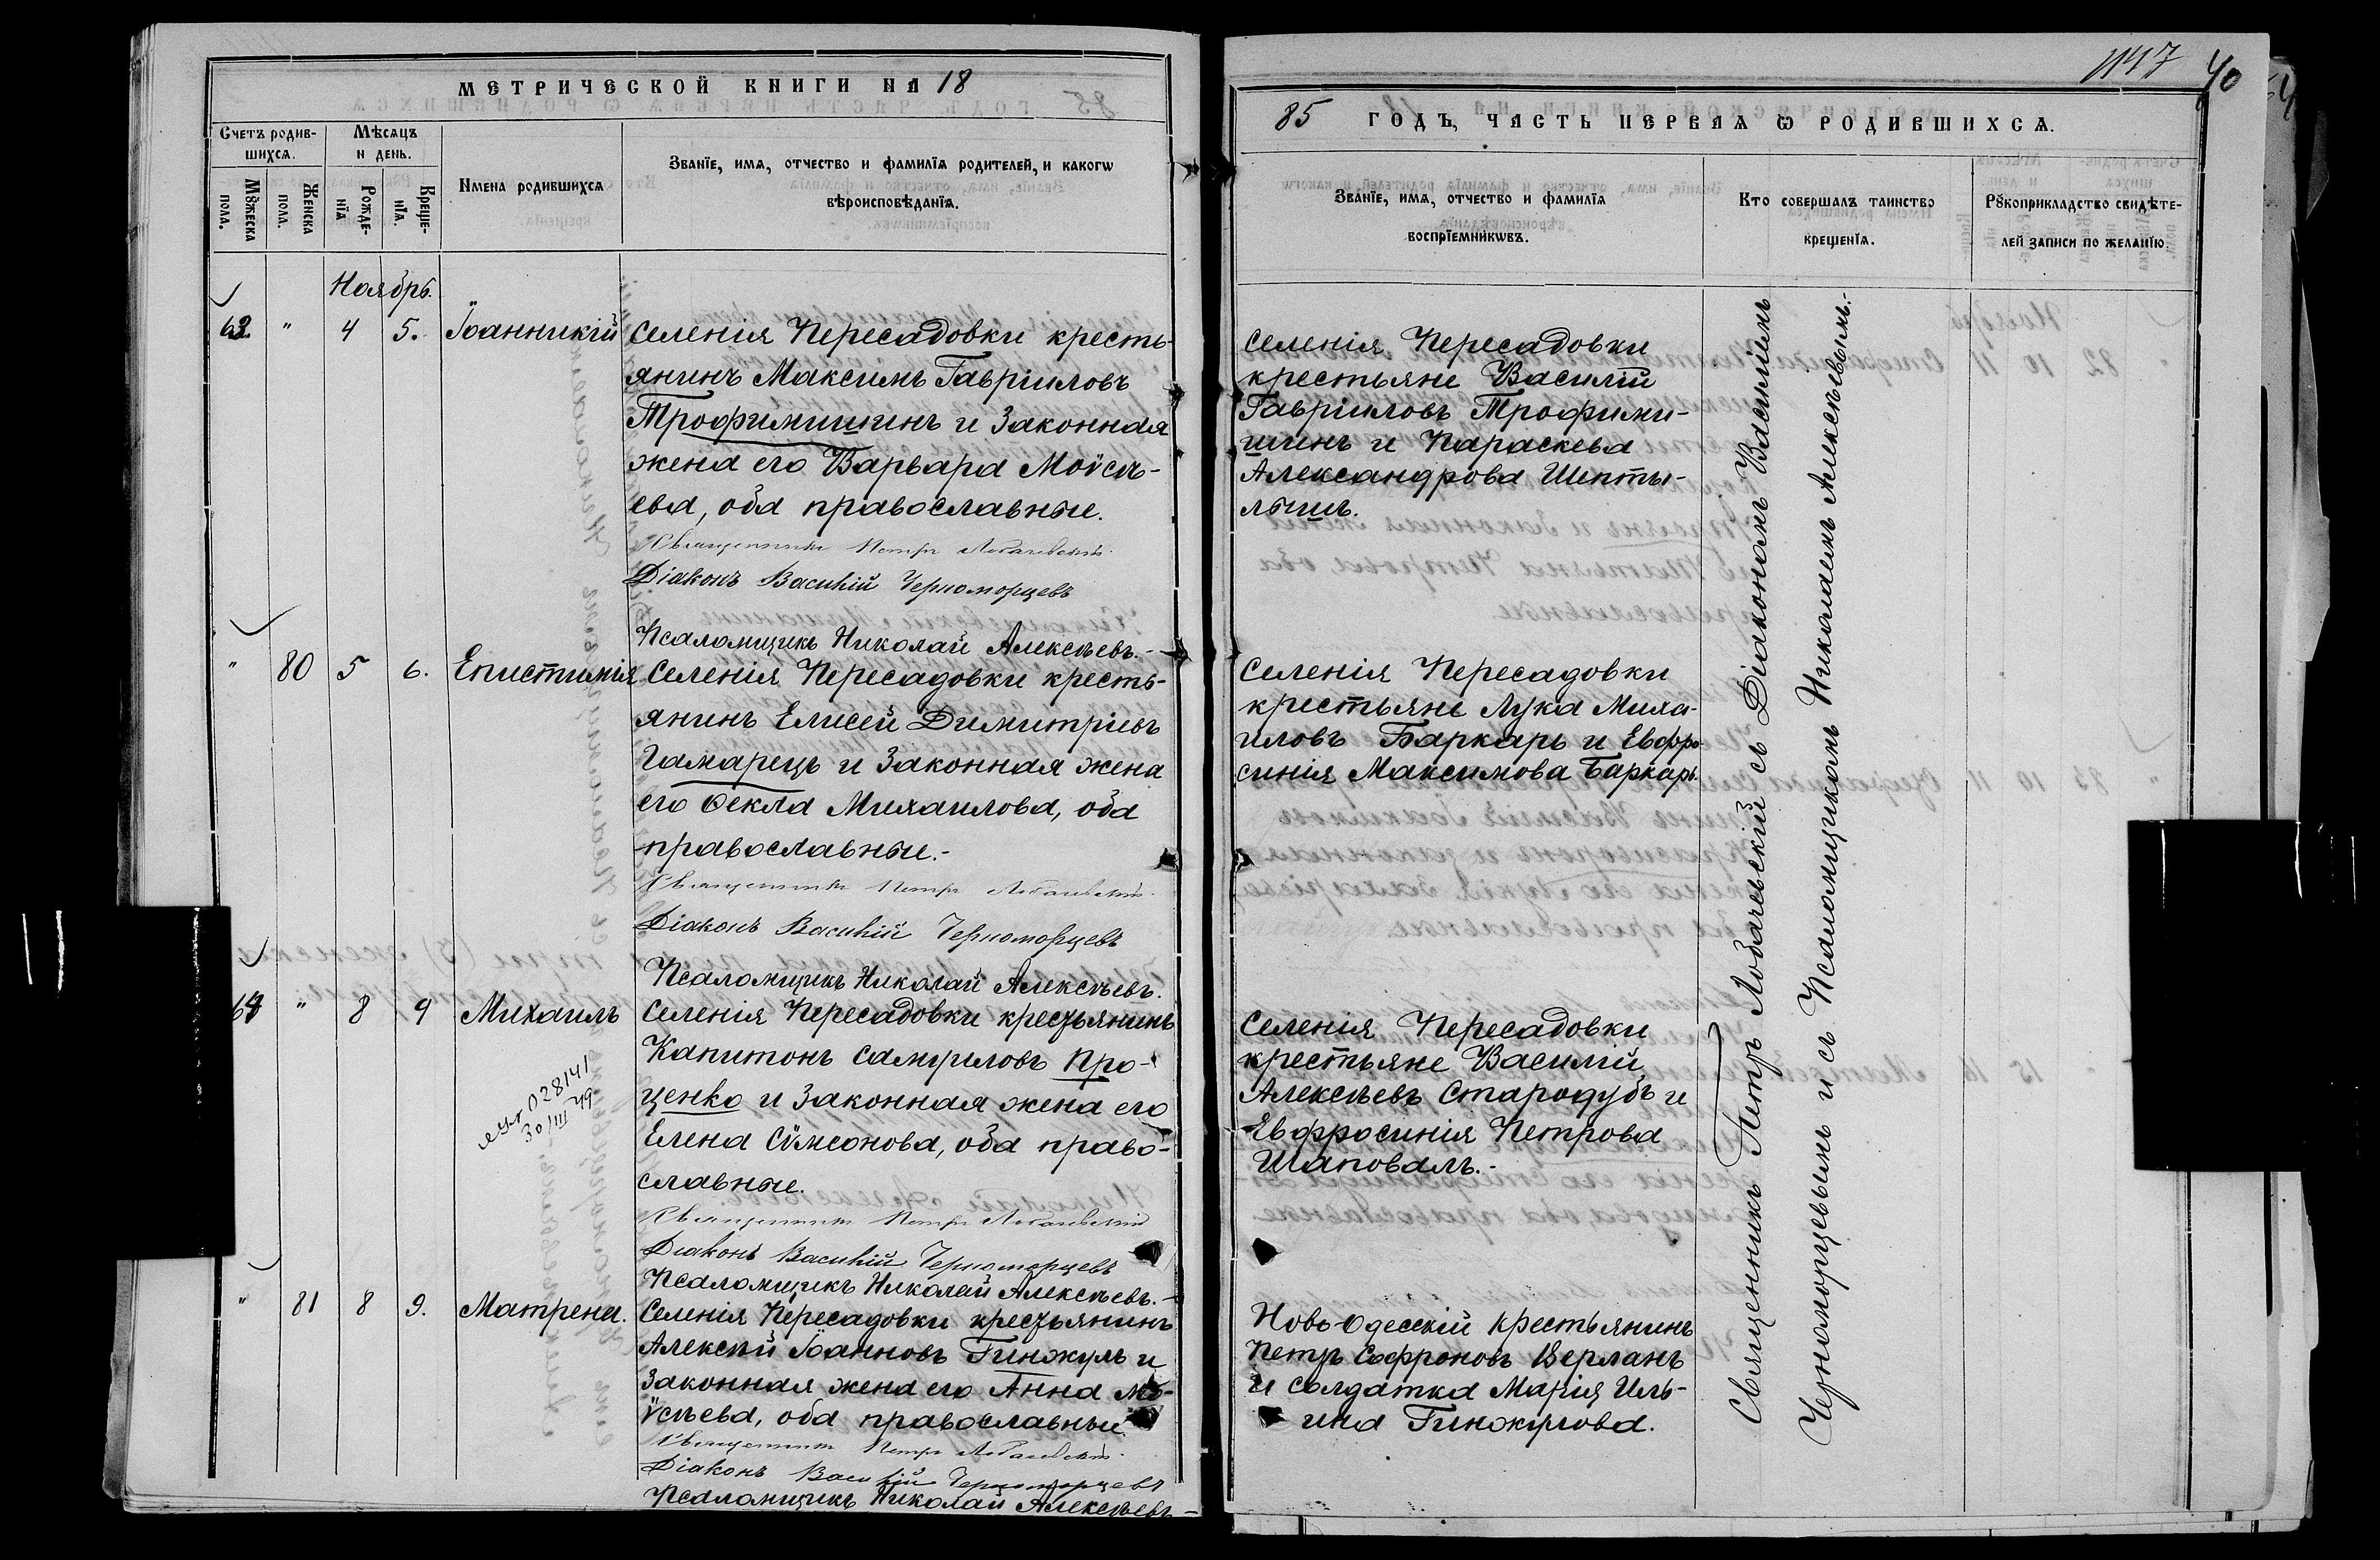 МЕТРИЧЕСКОЙ КНИГИ НА 18
Счетъ родив-
шихся.
Мѣсяцъ
и день.
Мꙋжеска
пола.
Женска
пола.
Рожде-
нїя
Креще-
нїя.
Имена родившихся
Званїе, имя, отчество и фамилїя родителей, и какогѡ
вѣроисповѣданїя.
Ноябрь.
63 " 4 5. Іоанникій
Селенія Пересадовки кресть-
янинъ Максимъ Гавріиловъ
Трофимишинъ и законная
жена его Варвара Моѵсѣ-
ева, оба православные.
Священникъ Петръ Лобачевскій
Діаконъ Василій Черноморцевъ
Псаломщикъ Николай Алексѣевъ.-
" 80 5 6. Епистимія
Селенія Пересадовки кресть-
янинъ Елисей Димитріевъ
Гамарецъ и законная жена
его Ѳекла Михаилова, оба
православные.-
Священникъ Петръ Лобачевскій
Діаконъ Василій Черноморцевъ
Псаломщикъ Николай Алексѣевъ.
64 " 8 9 Михаилъ
Селенія Пересадовки крестьянинъ
Капитонъ Самуиловъ Про-
ценко и законная жена его
Елена Сѵмеонова, оба право-
славные.
028141
30/III 49
Священникъ Петръ Лобачевскій
Діаконъ Василій Черноморцевъ
Псаломщикъ Николай Алексѣевъ.-
" 81 8 9. Матрена.
Селенія Пересадовки крестьянинъ
Алексѣй Іоанновъ Гинжулъ и
законная жена его Анна Мо-
ѵсѣева, оба православные.
Священникъ Петръ Лобачевскій
Діаконъ Василій Черноморцевъ
Псаломщикъ Николай Алексѣевъ-
1147
40
85 ГОДЪ, ЧАСТЬ ПЕРВАЯ Ѡ РОДИВШИХСЯ.
Званїе, имя, отчество и фамилїя
воспрїемникѡвъ.
Кто совершалъ таинство
крещенїя.
Рꙋкоприкладство свидѣте-
лей записи по желанїю.
Селенія Пересадовки
крестьяне Василій
Гавріиловъ Трофими-
шинъ и Параскева
Александрова Шепты-
лышъ.
Селенія Пересадовки
крестьяне Лука Миха-
иловъ Баркарь и Евфро-
синія Максимова Баркарь.
Селенія Пересадовки
крестьяне Василій
Алексѣевъ Стародубъ и
Евфросинія Петрова
Шаповалъ.-
Ново-Одесскій крестьянинъ
Петръ Софроновъ Верланъ
и солдатка Марія Иль-
ина Гинжулова.
Священникъ Петръ Лобачевскій съ Діакономъ Василіемъ
Черноморцевымъ и съ Псаломщикомъ Николаемъ Алексѣевымъ.-